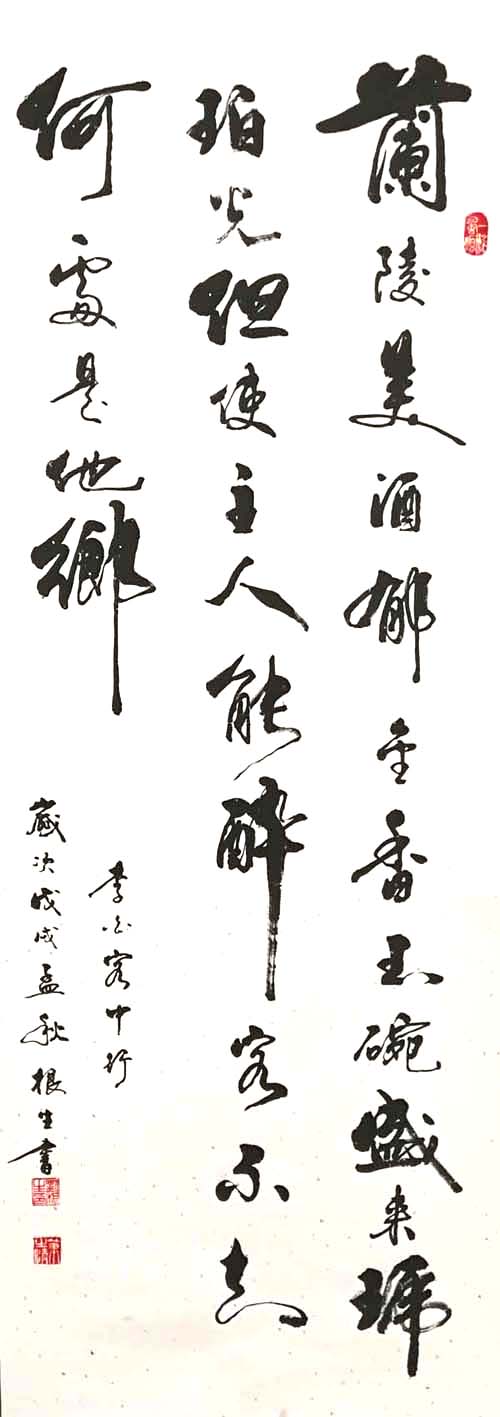 蘭陵美酒郁金香玉碗盛来琥
珀光但使主人能醉客不知
何處是他鄉
李白客中行
歲次戊戌孟秋根生書